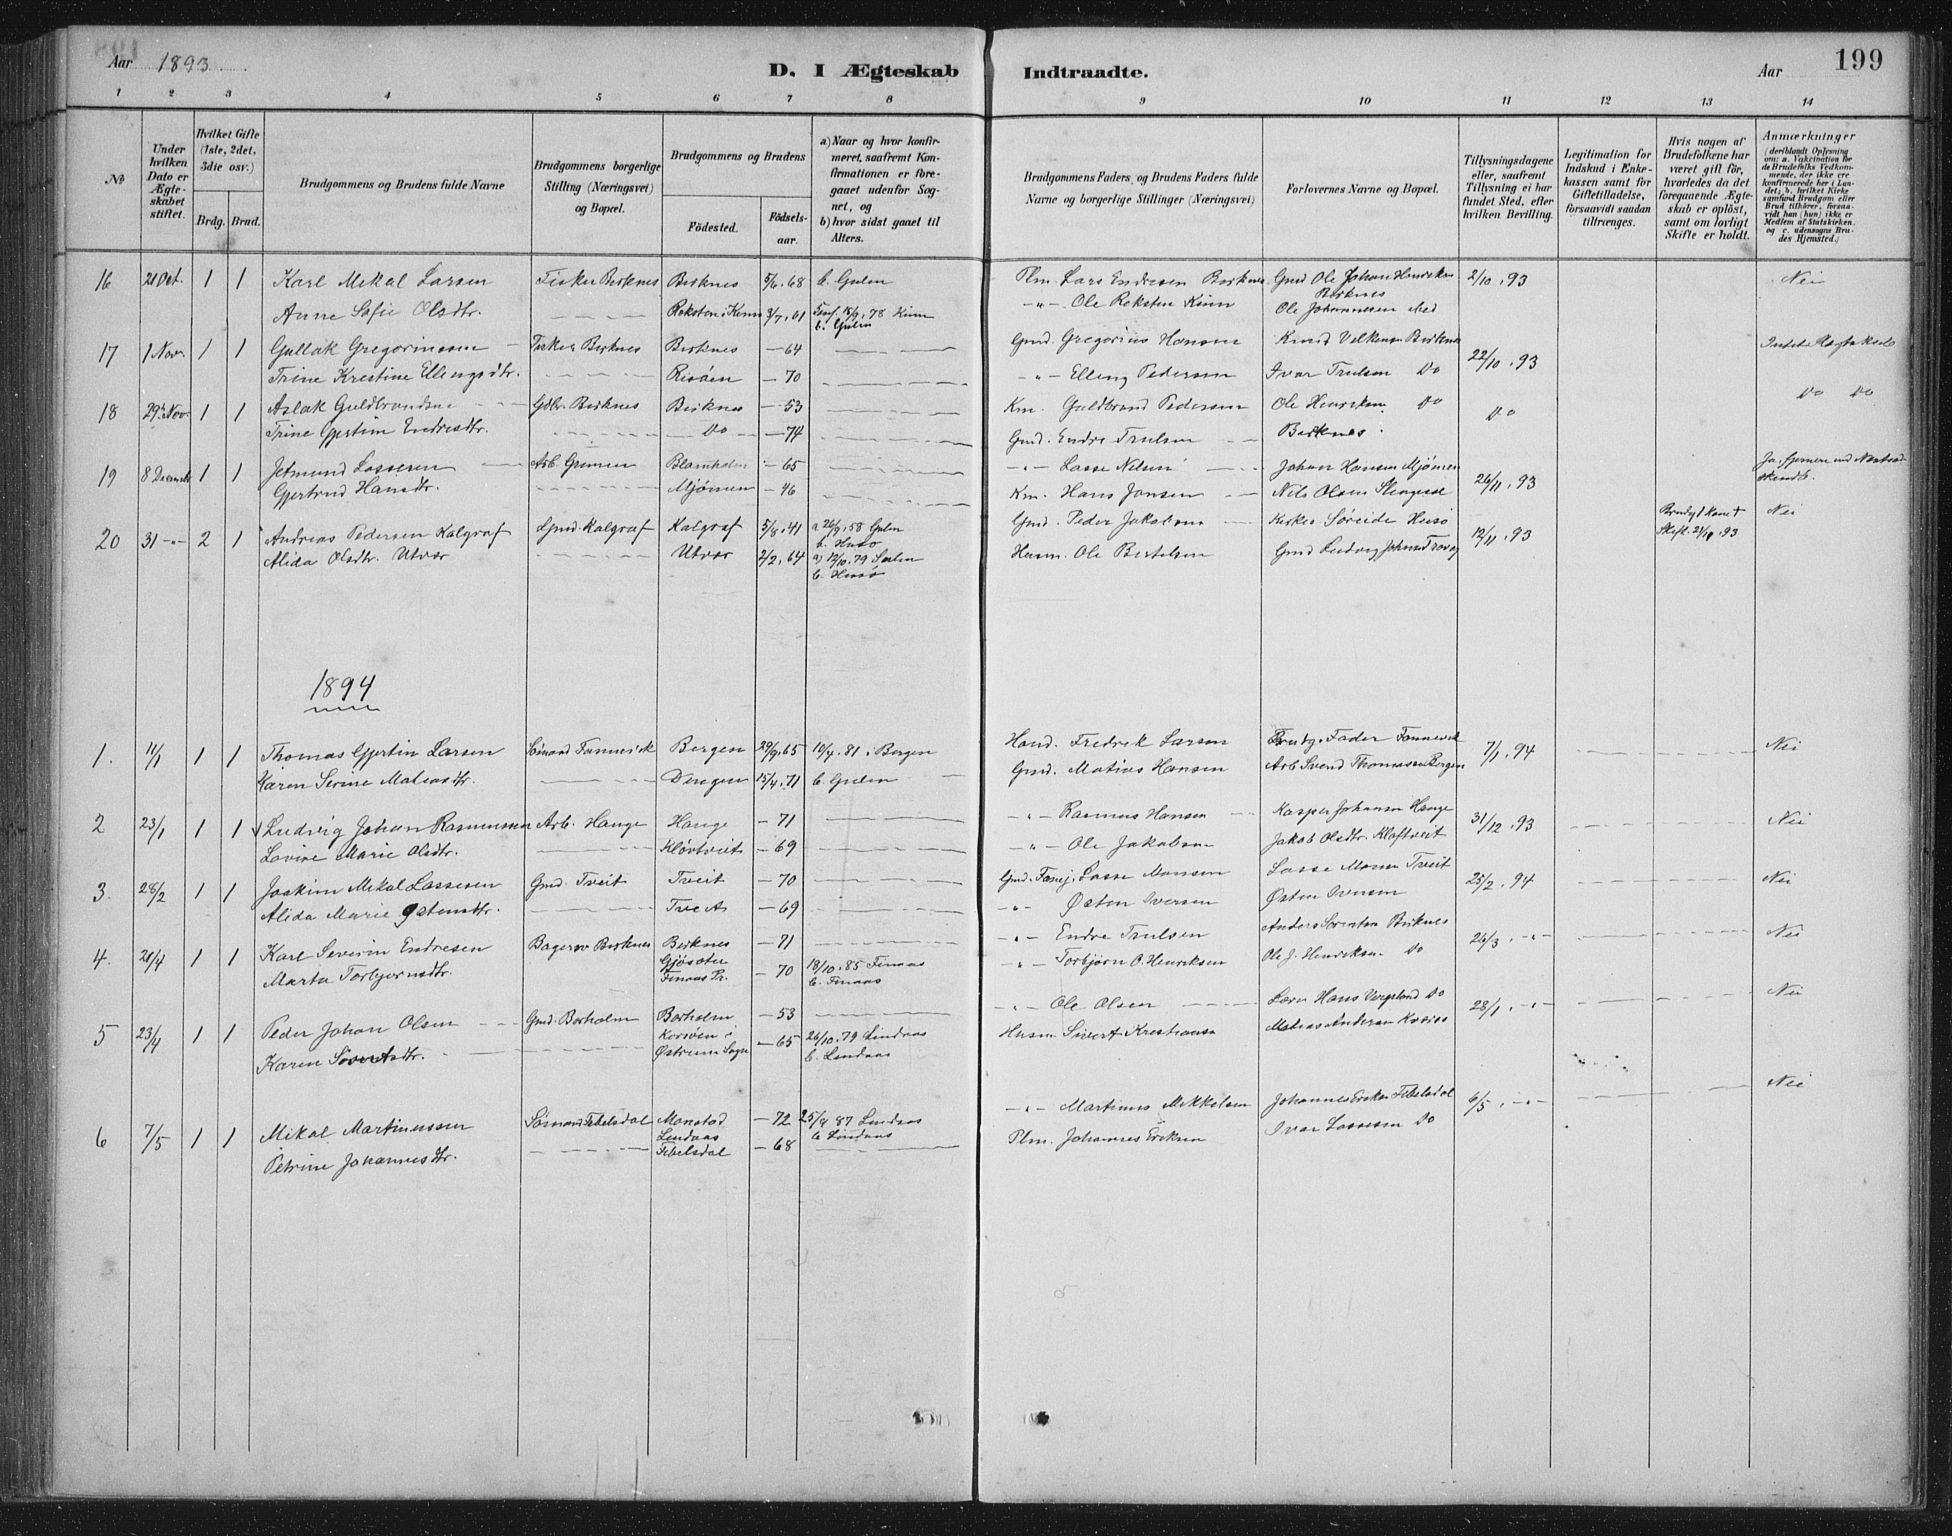 Aar 1893
D. I Ægteskab Indtraadte.
Aar
199
1 2 3 4 5 6 7 8 9 10 11 12 13 14
№
Under hvilken Dato er Ægteskabet stiftet.
Hvilket Gifte (1ste, 2det, 3die osv.)
Brdg. Brud.
Brudgommens og Brudens fulde Navne
Brudgommens borgerlige Stilling (Næringsvei) og Bopæl.
Brudgommens og Brudens
Födested.
Födsels-aar.
a) Naar og hvor konfirmeret, saafremt Konfirmationen er foregaaet udenfor Sognet, og
b) hvor sidst gaaet til Alters.
Brudgommens Faders, og Brudens Faders fulde Navne og borgerlige Stillinger (Næringsvei)
Forlovernes Navne og Bopæl.
Tillysningsdagene eller, saafremt Tillysning ei har fundet Sted, efter hvilken Bevilling.
Legitimation for Indskud i Enkekassen samt for Giftetilladelse, forsaavidt saadan tiltrænges.
Hvis nogen af Brudefolkene har været gift för, hvorledes da det foregaaende Ægteskab er oplöst, samt om lovligt Skifte er holdt.
Anmærkninger
(deriblandt Oplysning om: a. Vakcination for de Brudefolks Vedkommende, der ikke ere konfirmerede her i Landet; b. hvilket Kirkesamfund Brudgom eller Brud tilhörer, forsaavidt han (hun) ikke er Medlem af Statskirken, og c. udensogns Brudes Hjemsted.)
16 21 Oct. 1 1 Karl Mikal Larsen Fisker Birknes Birknes 5/6.68 b. Gulen Plm. Lars Endresen Birknes Gmd Ole Johan Henriksen Birknes 2/10.93 Nei
Anne Sofie Olsdtr. Reksten i Kinn 3/7.61 Conf. 18/9.78 Kinn b. Gulen -"- Ole Reksten Kinn Ole Johannesen
17 1 Nov. 1 1 Gullak Gregoriussen Fisker Birknes Birknes -64 Gmd. Gregorius Hansen Knud Birknes 22/10.93
Trine Kristine Ellingsdtr. Risöen -70 -"- Elling Pedersen Ivar Trulsen Do
18 29 Nov. 1 1 Aslak Guldbrandsen Gbr. Birknes Birknes -53 Km. Guldbrand Pedersen Ole Henriksen Do Do Do Do
Trine Gjertine Endresdtr. Do -74 Gmd. Endre Trulsen Birknes.
19 8 Decemb 1 1 Jetmund Lassesen Arb. Grinnen -65 -"- Lasse Nilsen Johan Hansen Mjömen 26/11.93
Gjertrud Hansdtr. Mjömen -46 Km. Hans Jonsen Nils Olsen
20 31 -"- 2 1 Andreas Pedersen Kalgraf Gmd. Kalgraf Kalgraf 5/8.41 a 26/9.58 Gulen b. Husö Gmd. Peder Jakobsen Kirkes. Söreide Husö 12/11.93 Skift. 21/10.93 Nei
Alida Olsdtr. Utvær Utvær 2/2.64 a) 12/10.79 b. Husö Husm. Ole Bertelsen Gmd Ludvig
1894
1. 11/1 1 1 Thomas Gjertin Larsen Sömand Fannevik Bergen 29/9.65 10/4.81 i Bergen Hand. Fredrik Larsen Brudg. Fader Fonnevik 7/1.94 Nei
Karen Serine Matiasdtr. Dingen 15/4.71 b. Gulen Gmd. Matias Hansen Arb Svend Thomassen Bergen
2 23/1 1 1 Ludvig Johan Rasmussen Arb. Hauge Hauge -71 -"- Rasmus Hansen Kasper Johansen Hauge 31/12.93 Nei
Lovine Marie Olsdtr. Klövtveit -69 -"- Ole Jakobsen Jakob Klöftveit
3. 28/2 1 1 Joakim Mikal Lassesen Gmd. Tveit Tveit -70 Gmd. Lasse Monsen Lasse Monsen Tveit 25/2.94 Nei
Alida Marie Östensdtr. Tveit -69 -"- Östen Iversen Östen Iversen
4. 28/4 1 1 Karl Severin Endresen Birknes Birknes -71 -"- Endre Trulsen Anders Birknes 26/3. -"- Nei
Marta Torbjörnsdtr. Gjösæter Finaas Pr. -70 18/10.85 Finaas b. Finaas -"- Torbjörn O. Henriksen Ole J. Henriksen Do
5 23/4 1 1 Peder Johan Olsen Gmd. Borholm Borholm -53 -"- Ole Olsen Hans Do 28/1. -"- Nei
Karen Sivertsdtr. Sogn -65 26/10.79 Lindaas b. Lindaas Husm. Sivert Kristiansen Matias Andersen
6 7/5 1 1 Mikal Martinussen Sömand Tibelsdal Monstad Lindaas -72 25/9 87 Lindaas b Lindaas -"- Martinus Mikkelsen Johannes Eriksen Tibelsdal 6/5. -"- Nei
Petrine Johannesdtr. Tibelsdal -68 Plm. Johannes Eriksen Ivar Lassesen Do